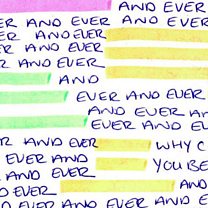 AND EVER
EVER AND EVER AND EVER
EVER AND EVER
AND EVER
ER AND EVER
AND
EVER AND EVER AND
AND EVER AND E
EVER AND EV
R AND EVER WHY C
EVER AND YOU BE
AND EVER
D EVER AND
EVER AND EVER AND EVER